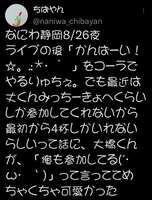 ちばやん
@naniwa_chibayan
なにわ静岡8/26夜
ライブの後「かんぱーい!
☆。.:*・゜」をコーラで
やるりゅちぇ。でも最近は
丈くんみっちーきょへくらい
しか参加してくれないから
最初から4杯しかいれない
らしいって話に、大橋くん
が、「俺も参加してる(´･
ω･｀)」って言っててめ
ちゃくちゃ可愛かった